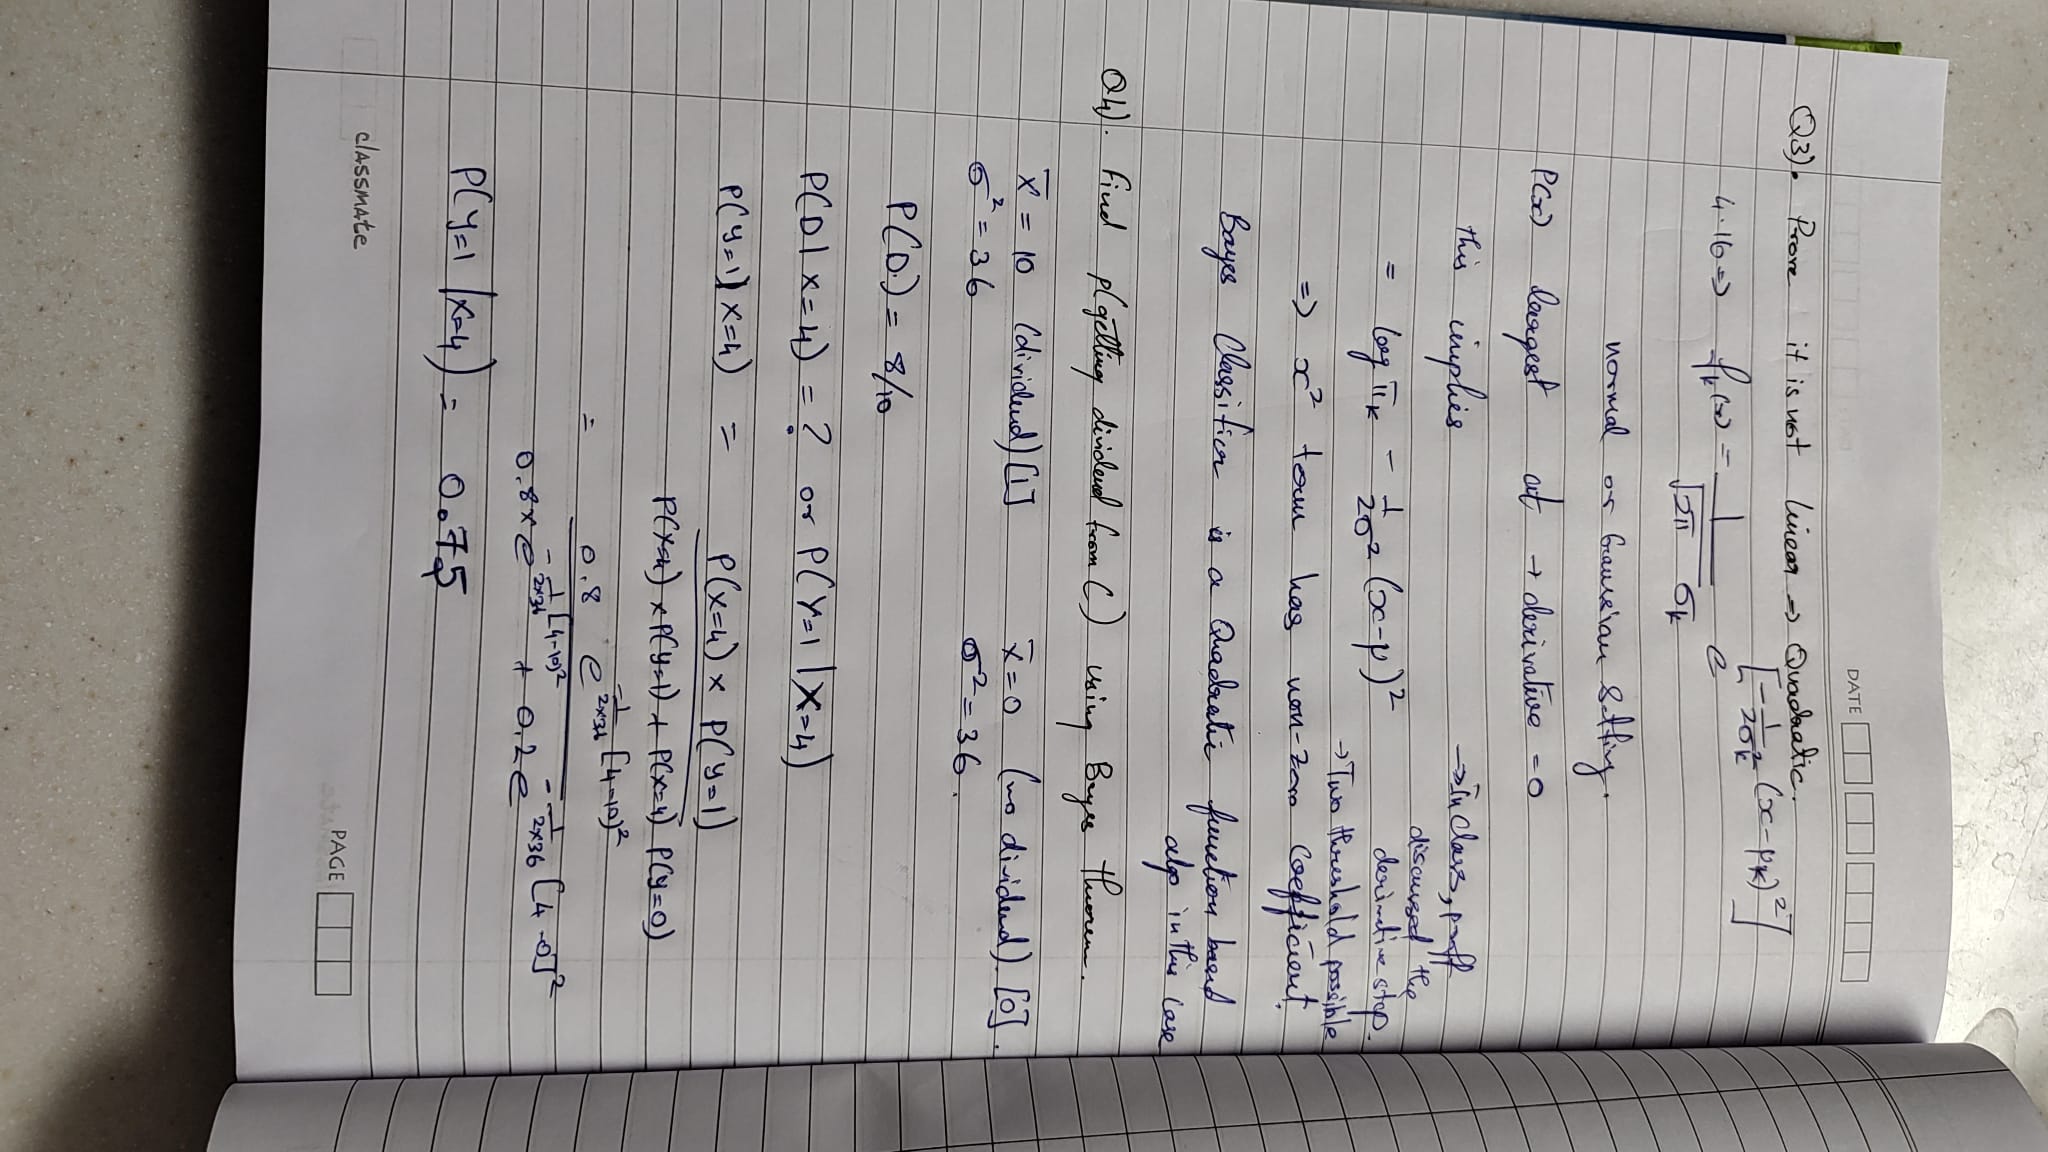 DATE
Q3). Prove it is not linear => Quadratic.
4.16 => fk(x) = 1 / √2π σk e [-1/2σk² (x-μk)²]
normal or Gaussian Setting.
P(x) largest at → derivative = 0
this implies → In class, proff discussed the derivative step.
= log πk - 1/2σ² (x-μ)² → Two threshold possible
=> x² term has non-zero coefficient.
Bayes Classifier is a Quadratic function based also in this case
Q4). Find P(getting dividend from C) using Bayes theorem.
x̄ = 10 (dividend) [1] x̄ = 0 (no dividend). [0].
σ² = 36 σ² = 36.
P(D) = 8/10
P(D | x=4) = ? or P(Y=1 | X=4)
P(y=1) x=4) = P(x=4) x P(y=1) / P(x=4) x P(y=1) + P(x=4) P(y=0)
= 0.8 e -1/2x36 [4-10)² / 0.8 x e -1/2x36 [4-10)² + 0.2 e -1/2x36 [4-0]²
P(Y=1 | x=4) = 0.75
classmate
PAGE